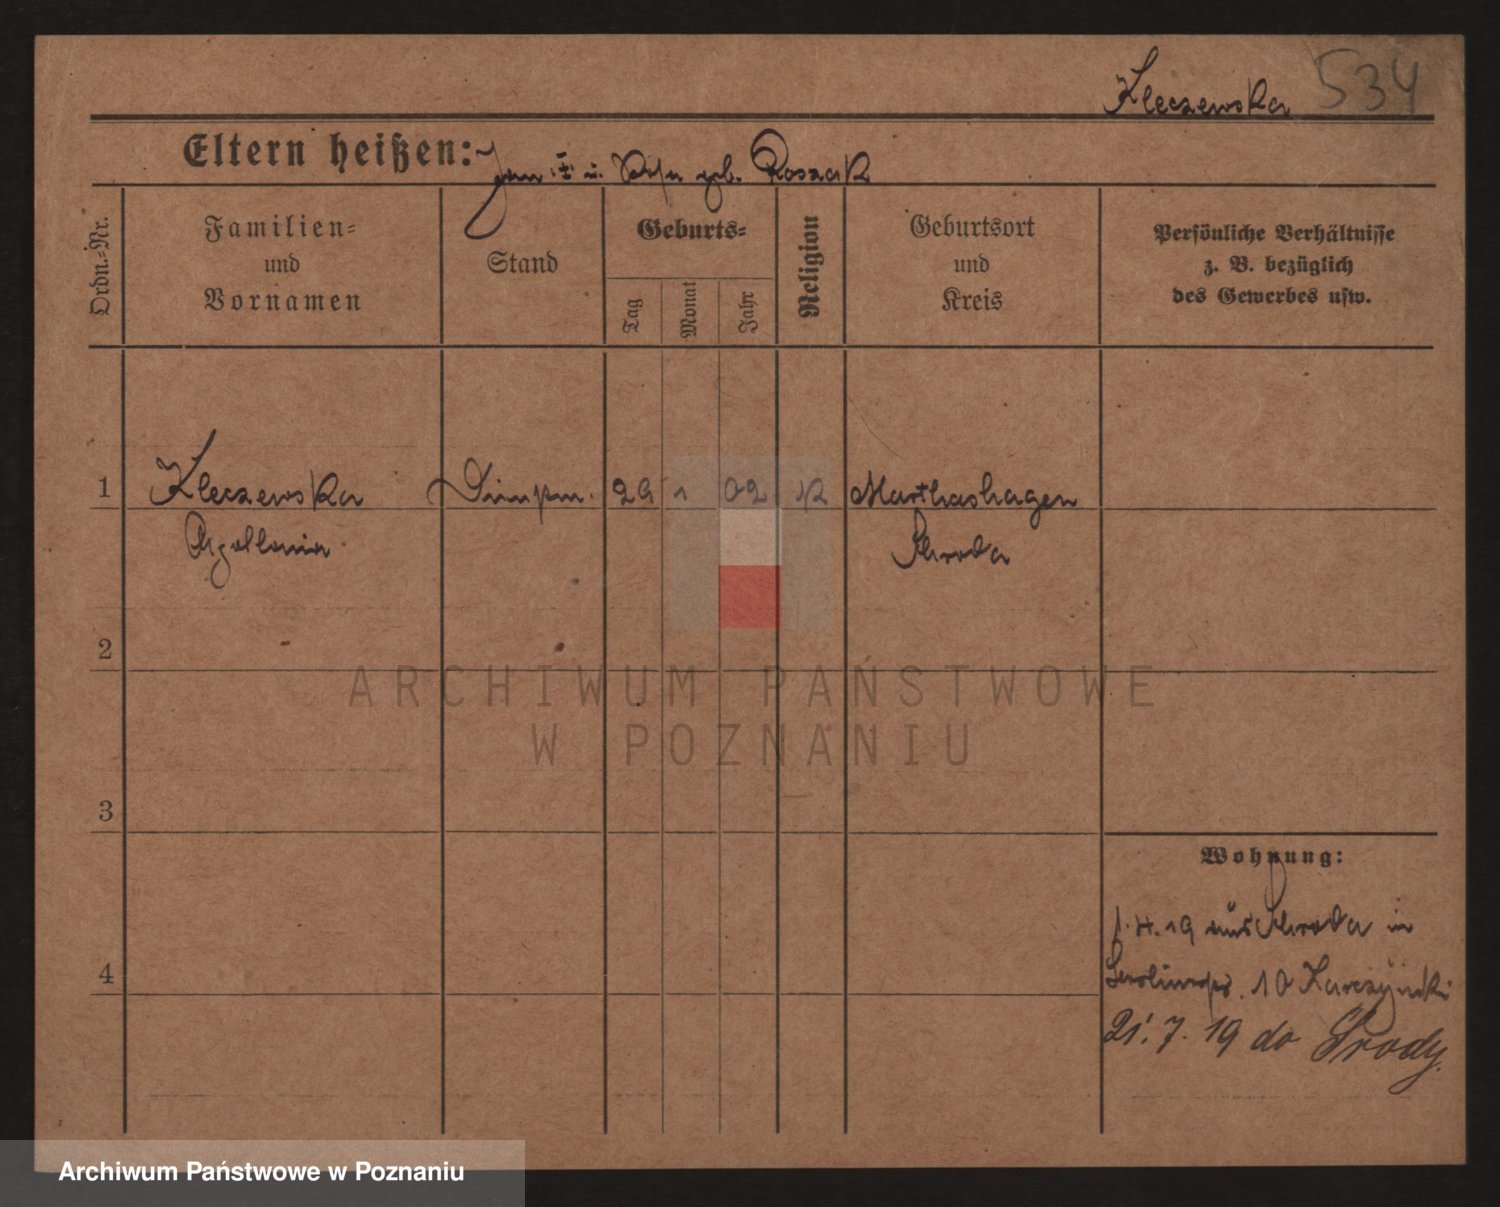 Kleczewska 534
Eltern heißen: Jan † u. geb. Roszak
Ordn.-Nr.
Familien-
und
Vornamen
Stand
Geburts-
Tag
Monat
Jahr
Religion
Geburtsort
und
Kreis
Persönliche Verhältnisse
z. B. bezüglich
des Gewerbes usw.
1 Kleczewska 29 1 02 K Marthashagen
Apollonia Schroda
2
3
4
Wohnung:
1.4.19 aus Schroda in
10 Karczynski
21.7.19 do Środy.
ARCHIWUM PAŃSTWOWE
W POZNANIU
Archiwum Państwowe w Poznaniu